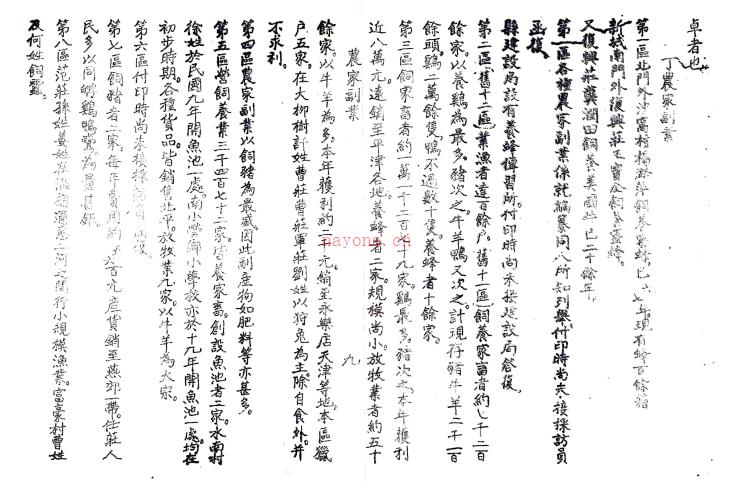 卓者也。
丁農家副業
第一區北門外沙窩村楊
新城南門外復興莊王
又復興莊龔潤田飼養美國 已二十餘年。
第一區各種農家副業係就編纂同人所知列舉付印時尚未接採訪員
函復。
縣建設局設有養蜂傳習所付印時尚未接建設局答復。
第二區舊十二區業漁者達百餘户。舊十一區飼養家畜者約七千二百
餘家。以養鷄為最多。豬次之。牛羊鴨又次之。計現存豬牛羊二千一百
餘頭。鷄二萬餘隻。鴨不過數十隻。養蜂者十餘家。
第三區飼家畜者約一萬一千二百十九家。鷄最多。豬次之。本年獲利
近八萬元。遠銷至平津各地。養蜂者二家。規模尚小。放牧業者約五十
農家副業
九
餘家。以牛羊為多。本年獲利約二 元。銷至永樂店天津等地。本區獵
户五家。在大柳樹許姓曹莊曹姓軍莊劉姓以狩兔為主。除自食外。並
不求利。
第四區農家副業以飼豬為最盛。因此副產物如肥料等亦甚多。
第五區營飼養業三千四百七十二家。皆農家畜。創設魚池者二家。水南村
徐姓於民國九年開魚池一處。南小營鄉小學校亦於十九年開魚池一處。均在
初步時期。各種貨品皆銷售北平。放牧業九家。以牛羊為大宗。
第六區付印時尚未接採訪員函復。
第七區飼豬者二家。每年費用約 百元。產貨銷至燕郊一帶。任莊人
民多以同 鷄鴨 為
第八區范莊孫姓姜姓在 河之間行小規模漁業。富豪村曹姓
及何姓飼蠶。
nayong.cn